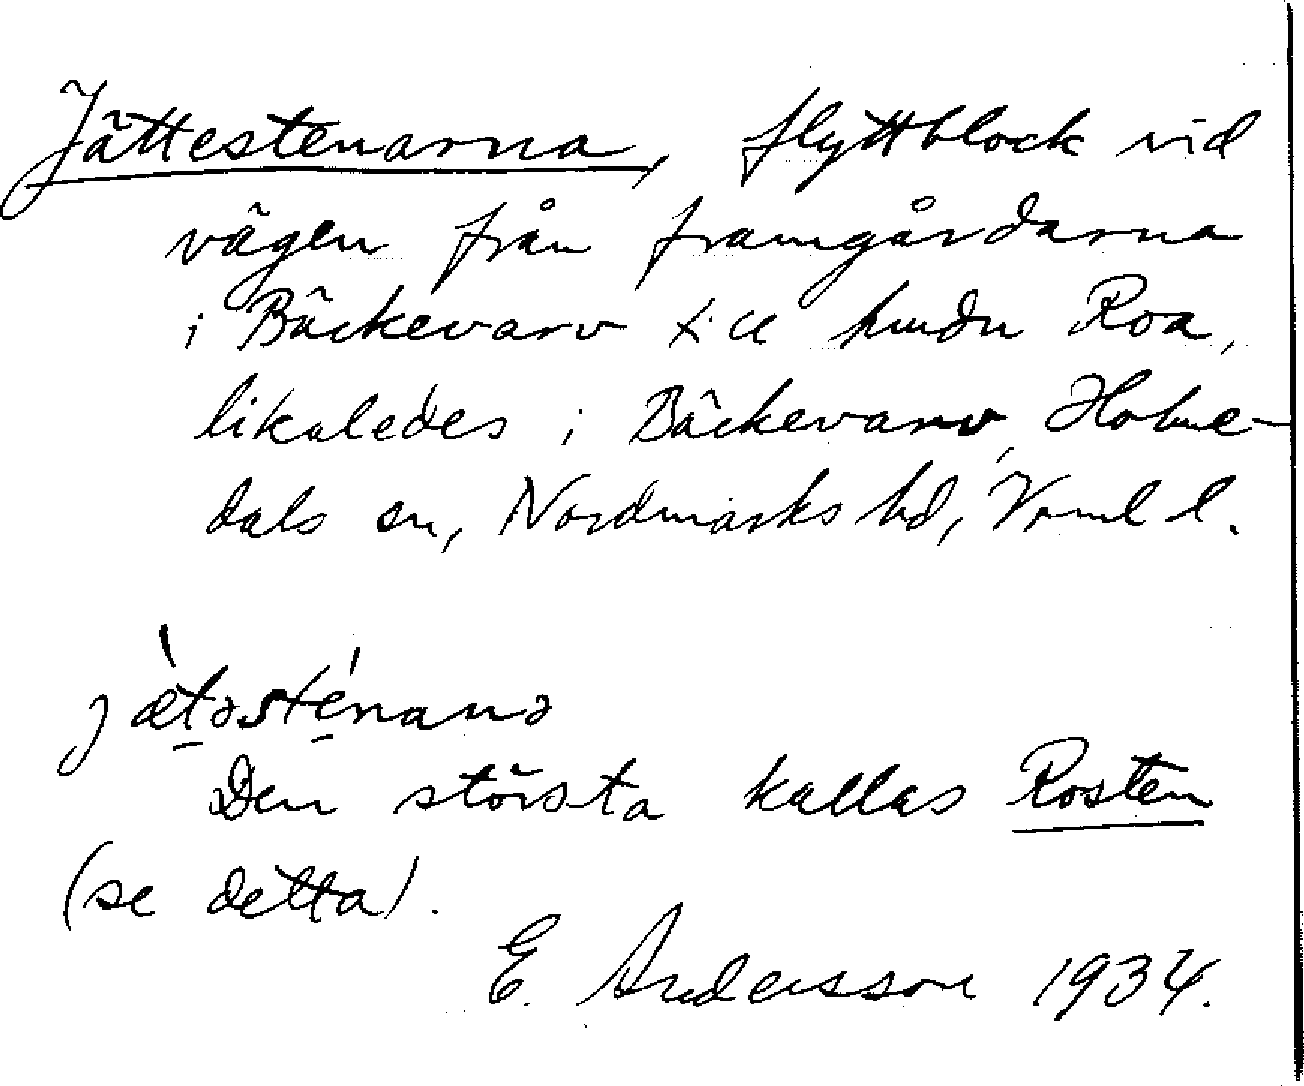 Jättestenarna, flyttblock vid
vägen från framgårdarna
i Bäckevarv till Roa,
likaledes i Bäckevarv, Holme-
dals sn, Nordmarks hd, Vrml l.
jæ̀tǝsténanǝ
Den största kallas Rosten
(se detta).
E. Andersson 1934.